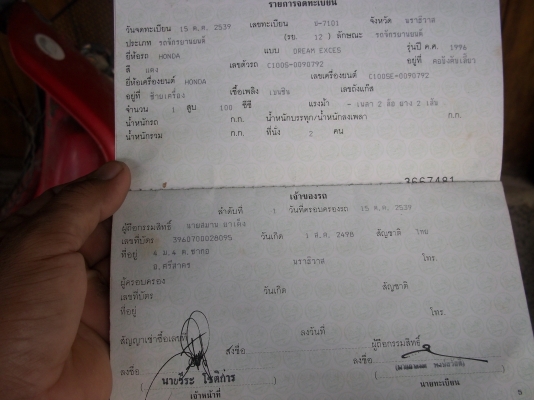 รายการจดทะเบียน
วันจดทะเบียน 15 ต.ค. 2539 เลขทะเบียน ษ-7101 จังหวัด นราธิวาส
ประเภท รถจักรยานยนต์ (รย. 12 ) ลักษณะ รถจักรยานยนต์
ยี่ห้อรถ HONDA แบบ DREAM EXCES รุ่นปี ค.ศ. 1996
สี แดง เลขตัวรถ C100SE-0090792 อยู่ที่ คอถังคันเลี้ยว
ยี่ห้อเครื่องยนต์ HONDA เลขเครื่องยนต์ C100SE-0090792
อยู่ที่ ซ้ายเครื่อง เชื้อเพลิง เบนซิน เลขถังแก๊ส
จำนวน 1 สูบ 100 ซีซี แรงม้า - เพลา 2 ล้อ ยาง 2 เส้น
น้ำหนักรถ ก.ก. น้ำหนักบรรทุก/น้ำหนักลงเพลา ก.ก.
น้ำหนักรวม ก.ก. ที่นั่ง 2 คน
3667481
เจ้าของรถ
ลำดับที่ 1 วันที่ครอบครองรถ 15 ต.ค. 2539
ผู้ถือกรรมสิทธิ์ นายสมาน
เลขที่บัตร 3960700028095 วันเกิด 1 ส.ค. 2498 สัญชาติ ไทย
ที่อยู่ 4 ม.4 ต.ซากอ
อ.ศรีสาคร นราธิวาส โทร.
ผู้ครอบครอง
เลขที่บัตร วันเกิด สัญชาติ
ที่อยู่ โทร.
สัญญาเช่าซื้อเลขที่ ลงวันที่
ลงชื่อ ผู้ถือกรรมสิทธิ์
ลงชื่อ ลงชื่อ
(นายวีระ โชติกำร)
เจ้าหน้าที่ นายทะเบียน
5